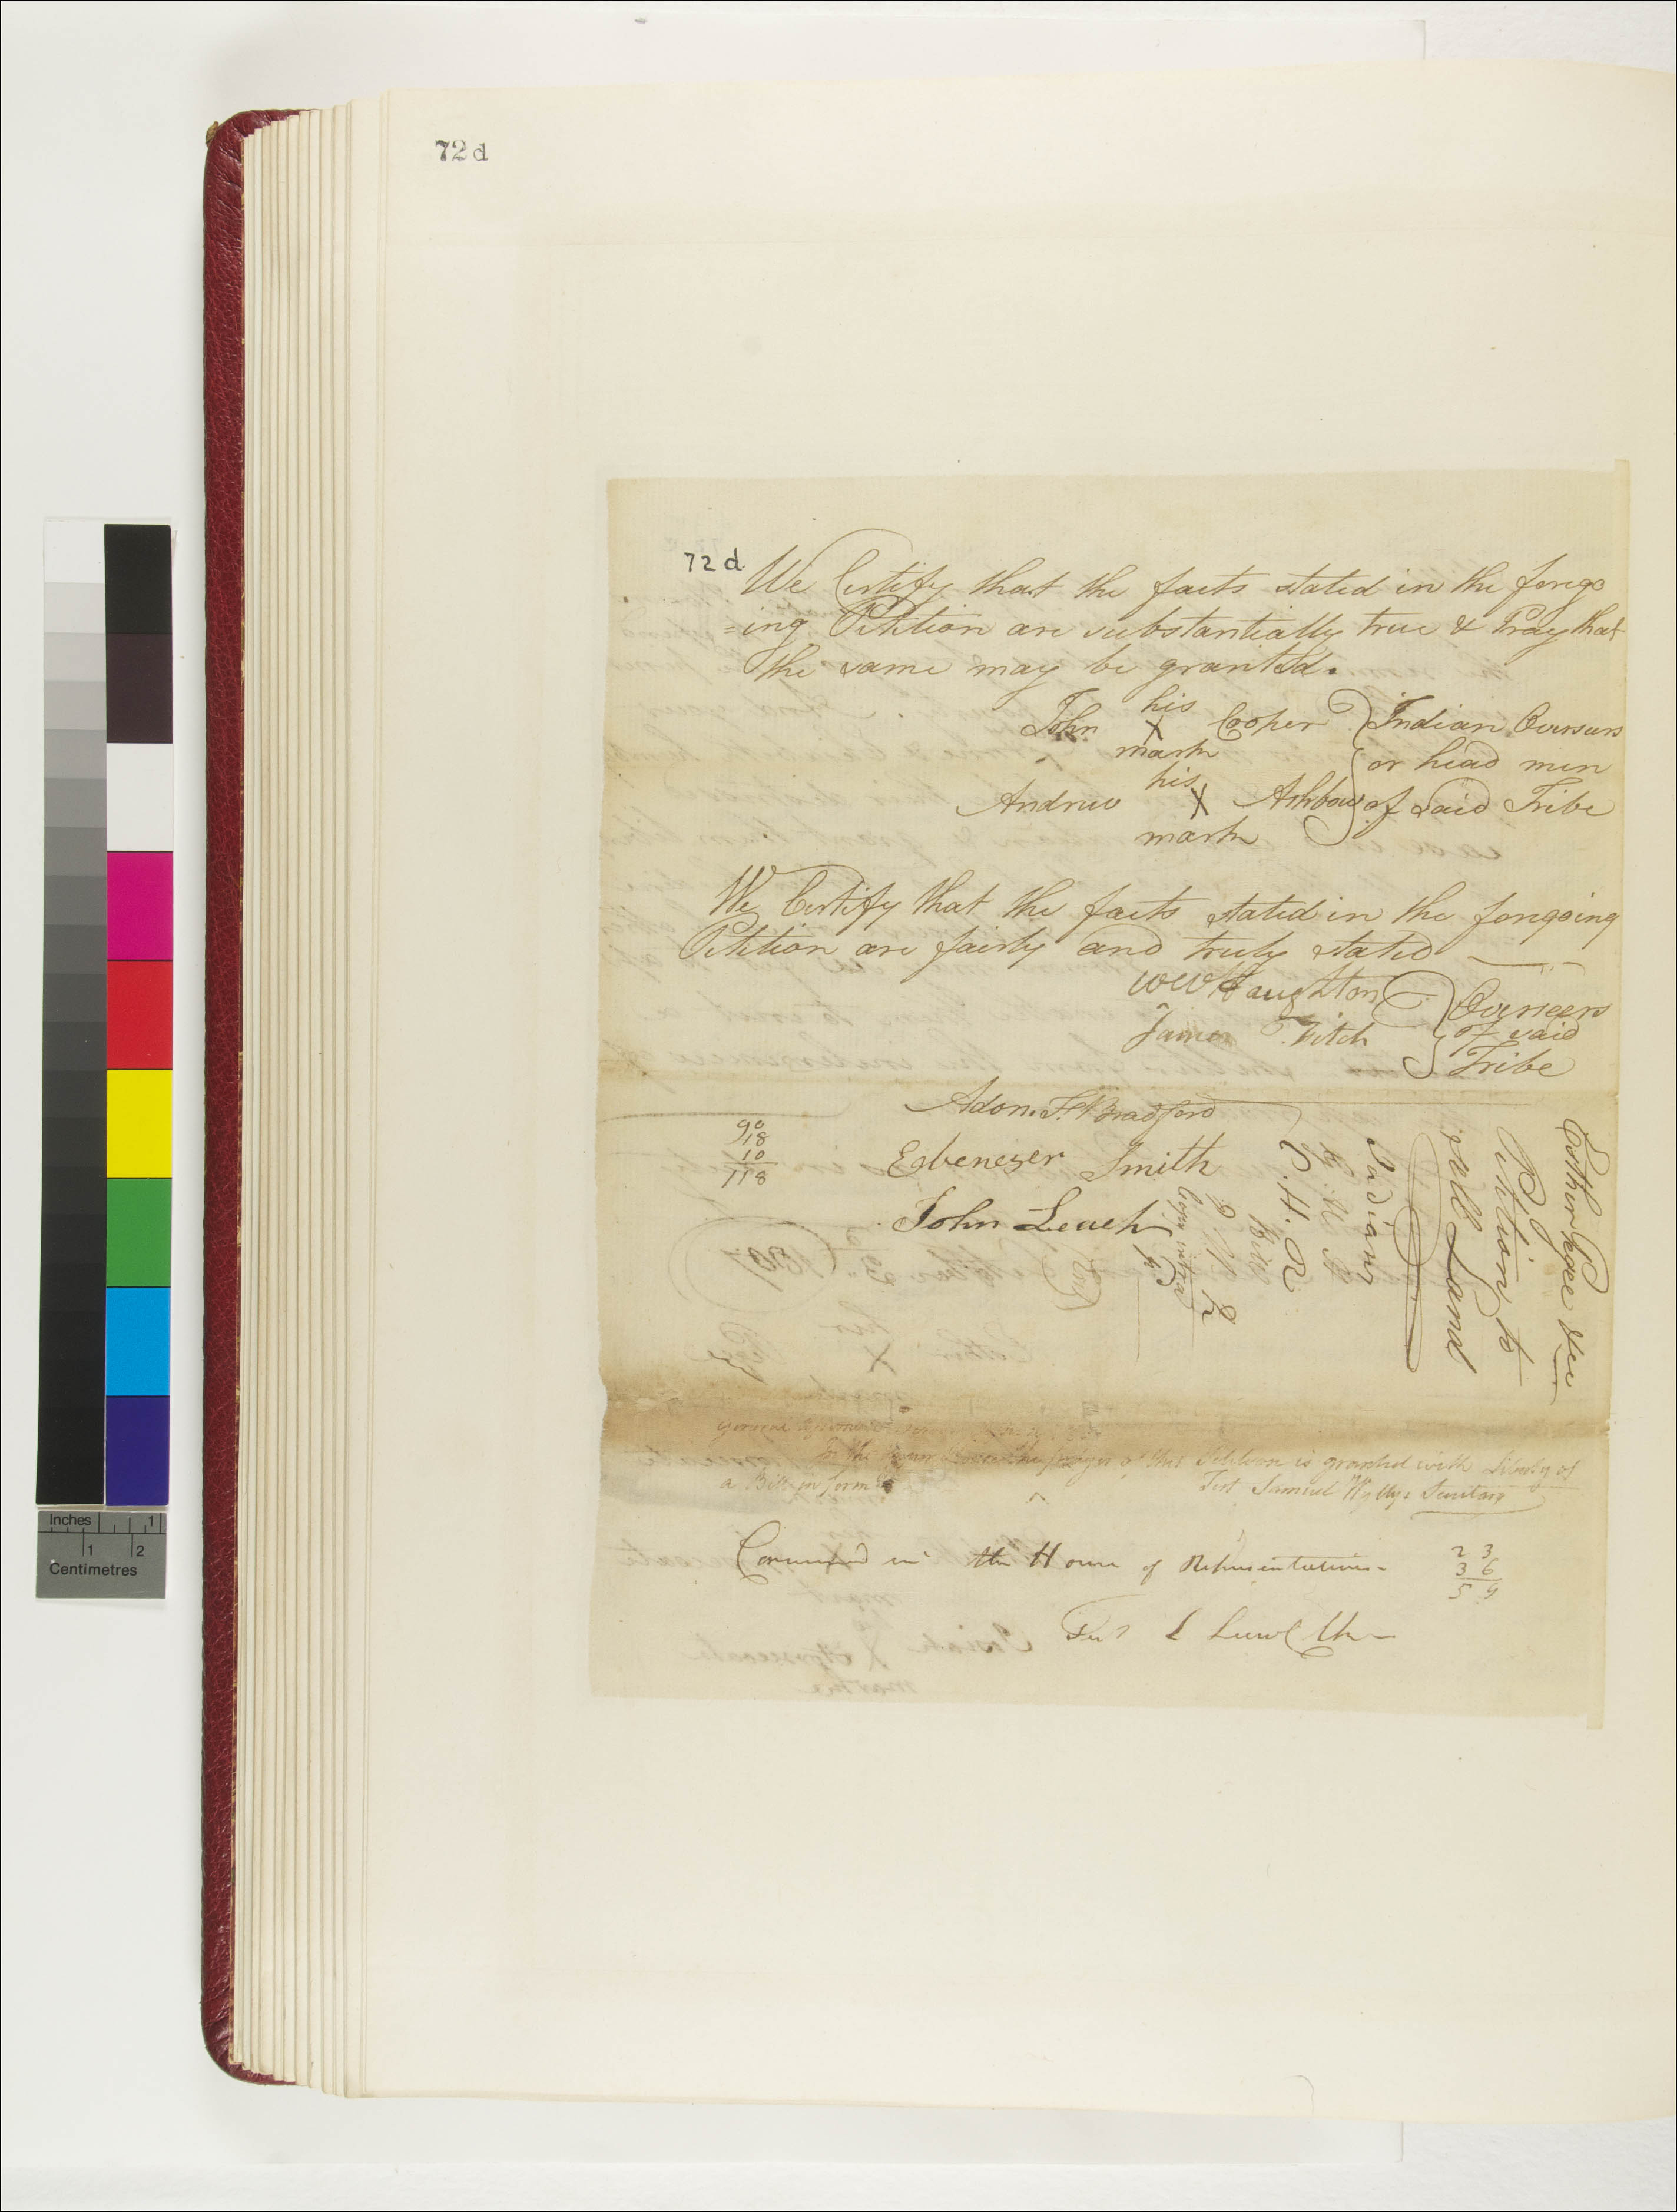 72d
72 d.
We Certify that the facts stated in the forego
=ing Petition are substantially true & Pray that
the same may be granted.
John his X mark Cooper
Andrew his X mark Ashbow
Indian Overseers
or head men
of said Tribe
We Certify that the facts stated in the foregoing
Petition are fairly and truly stated
WW Haughton
James Fitch
Overseers
of said
Tribe
Adon. Bradford
Ebenezer Smith
John Leach
90
18
10
118
Petition to
sell Land
Indians
C. H. R
Bill
In the the prayer of this Petition is granted with Liberty of
a Bill in form
Test Samuel Wyllys Secretary
in the House of Representatives
23
36
59
Inches 1
1 2
Centimetres